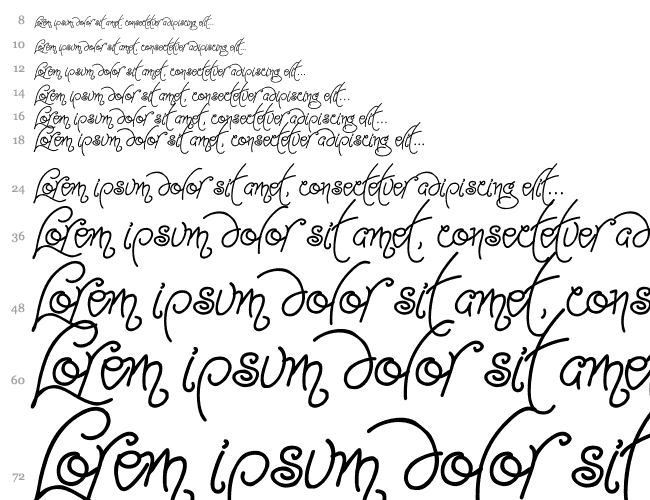 8 Lorem ipsum dolor sit amet, consectetuer adipiscing elit...
10 Lorem ipsum dolor sit amet, consectetuer adipiscing elit...
12 Lorem ipsum dolor sit amet, consectetuer adipiscing elit...
14 Lorem ipsum dolor sit amet, consectetuer adipiscing elit...
16 Lorem ipsum dolor sit amet, consectetuer adipiscing elit...
18 Lorem ipsum dolor sit amet, consectetuer adipiscing elit...
24 Lorem ipsum dolor sit amet, consectetuer adipiscing elit...
36 Lorem ipsum dolor sit amet, consectetuer ad
48 Lorem ipsum dolor sit amet, cons
60 Lorem ipsum dolor sit ame
72 Lorem ipsum dolor sit